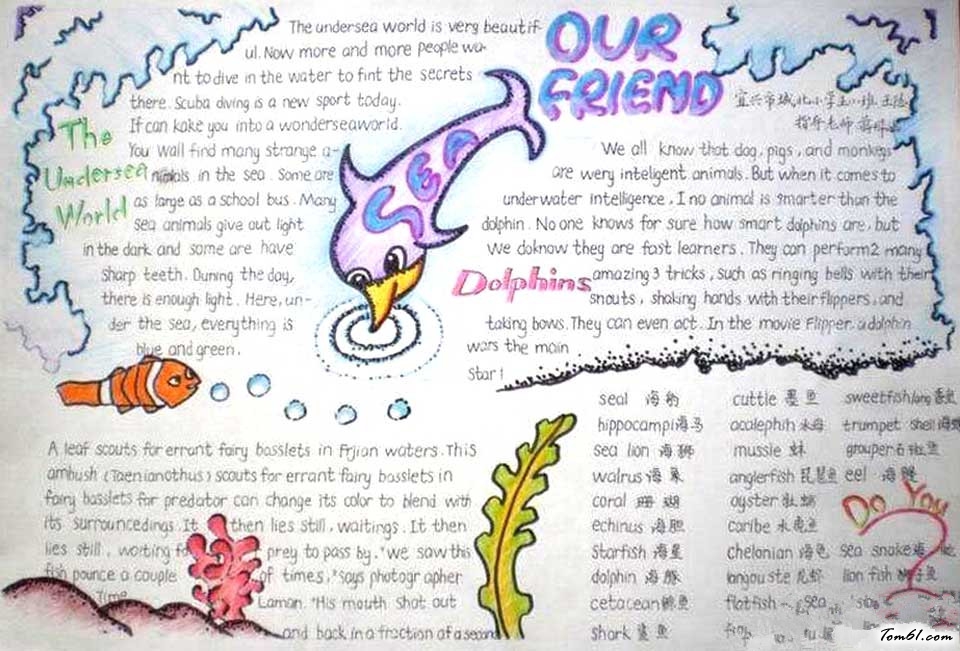 OUR
FRIEND
SEA
The undersea world is very beautif-
ul. Now more and more people wa-
nt to dive in the water to fint the secrets
there. Scuba diving is a new sport today.
If can kake you into a wonderseaworld.
You wall find many strange a-
nimals in the sea. Some are
as large as a school bus. Many
sea animals give out light
in the dark and some are have
sharp teeth. During the day,
there is enough light. Here, un-
der the sea, everything is
blue and green.
The
Undersea
World
宜兴市城北小学五八班
指导老师
We all know that dog, pigs, and monkeys
are wery inteligent animals. But when it comes to
underwater intelligence, I no animal is smarter than the
dolphin. No one knows for sure how smart dolphins are, but
we doknow they are fast learners. They can perform2 many
amazing3 tricks, such as ringing bells with their
snouts, shaking hands with their flippers, and
taking bows. They can even act. In the movie Flipper, a dolphin
wars the main
Star!
Dolphins
A leaf scouts for errant fairy basslets in Frjian waters. This
ambush (Taenianothus) scouts for errant fairy basslets in
fairy basslets for predator can change its color to blend with
its surrouncedings. It then lies still, waitings. It then
lies still, worting fo prey to pass by. "we saw this
fish pounce a couple of times," says photogr apher
Time Laman. "His mouth shot out
and back in a fraction of a second
seal 海豹 cuttle 墨鱼 sweetfish
hippocampi 海马 acalephih 水母 trumpet shell
sea lion 海狮 mussle grouper 石斑鱼
walrus 海象 anglerfish 琵琶鱼 eel 海鳗
coral 珊瑚 oyster 牡蛎
echinus 海胆 caribe 水虎鱼
starfish 海星 chelonian 海龟 sea snake
dolphin 海豚 langouste 龙虾 lion fish 狮子鱼
cetacean 鲸鱼 flatfish
shark 鲨鱼
Do You
?
Tom61.com